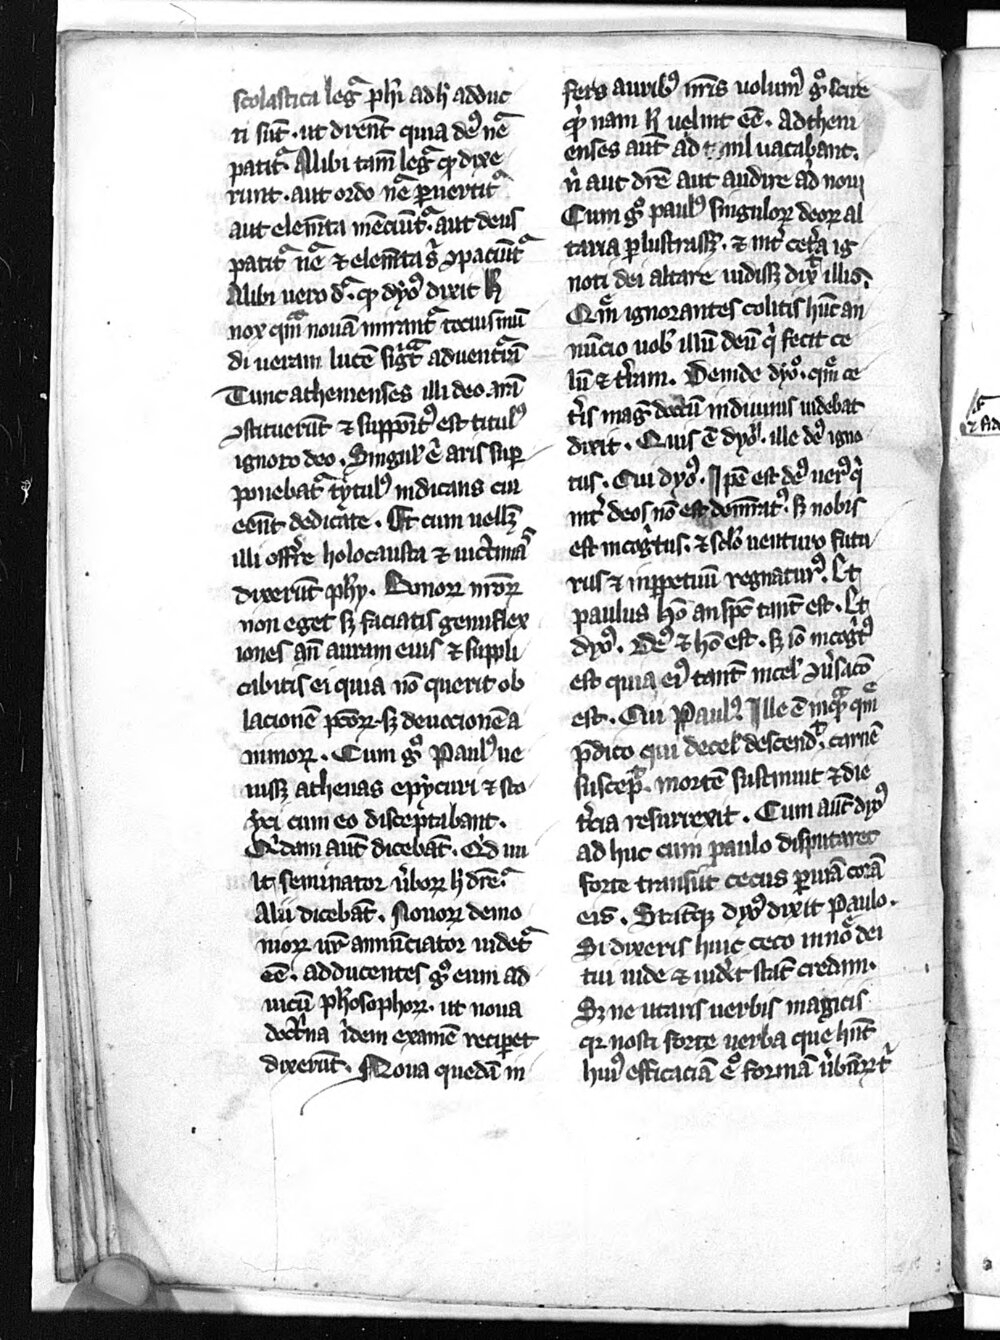 scolastica legr̄ phi ad h' adduc
ti sūt · ut dirēnt quia de9 nē
patit᷑ Alibi tam̄ legr̄ qp dixe
runt · aut ordo nē ꝑuertit᷑
aut elem̄ta mēciūt᷑ · aut deus
patit᷑ nē ⁊ elem̄ta ꝯpaciūt᷑
Alibi uero dr̄ · qp dyo9 dixit h'
nox qm̄ nouā mirant᷑ tocius mū
di ueram lucē sig᷑t aduent᷑ā
Tunc athenienses illi deo arā
ꝯstituerūt ⁊ suppoīt9 est titul9
ignoto deo . Singul' ē aris sup
ponebat᷑ tytul9 indicans cui
eēnt dedicate . Et cum uellꝫ
illi offr̄e holocausta ⁊ uictīas
dixerūt phy . Bonoꝝ nr̄oꝝ
non eget sꝫ faciatis genuflex
iones an̄ auram eius ⁊ suppli
cabitis ei quia nō querit ob
lacionē pecoꝝ · sꝫ deuocionē a
nimoꝝ . Cum g° Paul9 ue
nissꝫ athenas epycuri ⁊ sto
yci cum eo disceptabant .
Qi'dam aūt dicebāt . Q'd uu
lt seminator ūboꝝ h' dr̄e .
Alii dicebāt . Nouoꝝ demo
nioꝝ ur̄ annūciator uidet᷑
eē . adducentes g° eum ad
uicū ph'osophoꝝ · ut noua
doct'na idem examē reciꝑet
dixerūt . Noua quedā in
fers aurib9 nr̄is uolum9 g° scire
qi'nam h' uelint eē . Atheni
enses aūt ad nil uacabant .
n' aut dr̄e aut audire ad noui
Cum g° paul9 singuloꝝ deoꝝ al
taria ꝑlustrassꝫ · ⁊ int' cet'a ig
noti dei altare uidissꝫ dix᷑ illis .
Qm̄ ignorantes colitis hūc an
nūcio uob' illū deū qi' fecit ce
lū ⁊ t'ram . Deinde dyo° . qm̄ ce
t'is mag' doctū in diuinis uidebat
dixit . Quis ē dyo' . ille de9 igno
tus . Cui dyo9 . Ipē est de9 uer9 qi'
int' deos nō est demr̄at9 . sꝫ nobis
est incogitus . ⁊ sclo uenturo futu
rus ⁊ inꝑpetuū regnatur9 . Et
paulus Hō an sp̄c tant' est . Et
dyo9 . De9 ⁊ hō est . sꝫ iō incog't9
est quia ei9 tant' in cel' ꝯūsacō
est . Cui Paul9 . Ille ē inq᷑ qm̄
p̄dico qui de cel' descend᷑ . carnē
suscep᷑ . mortē sustinuit ⁊ die
t'cia resurrexit . Cum aūt dyo9
ad huc cum paulo disputaret
forte transiit cecus ꝑ uiā corā
eis . Statīqꝫ dyo9 dixit Paulo .
Si dixeris huic ceco in noīe dei
tui uide ⁊ uid'it stāt' credam .
Sꝫ ne utaris uerbis magicis
qꝛ nosti forte uerba que hn̄t
hui9 efficaciā ē° formā ūb